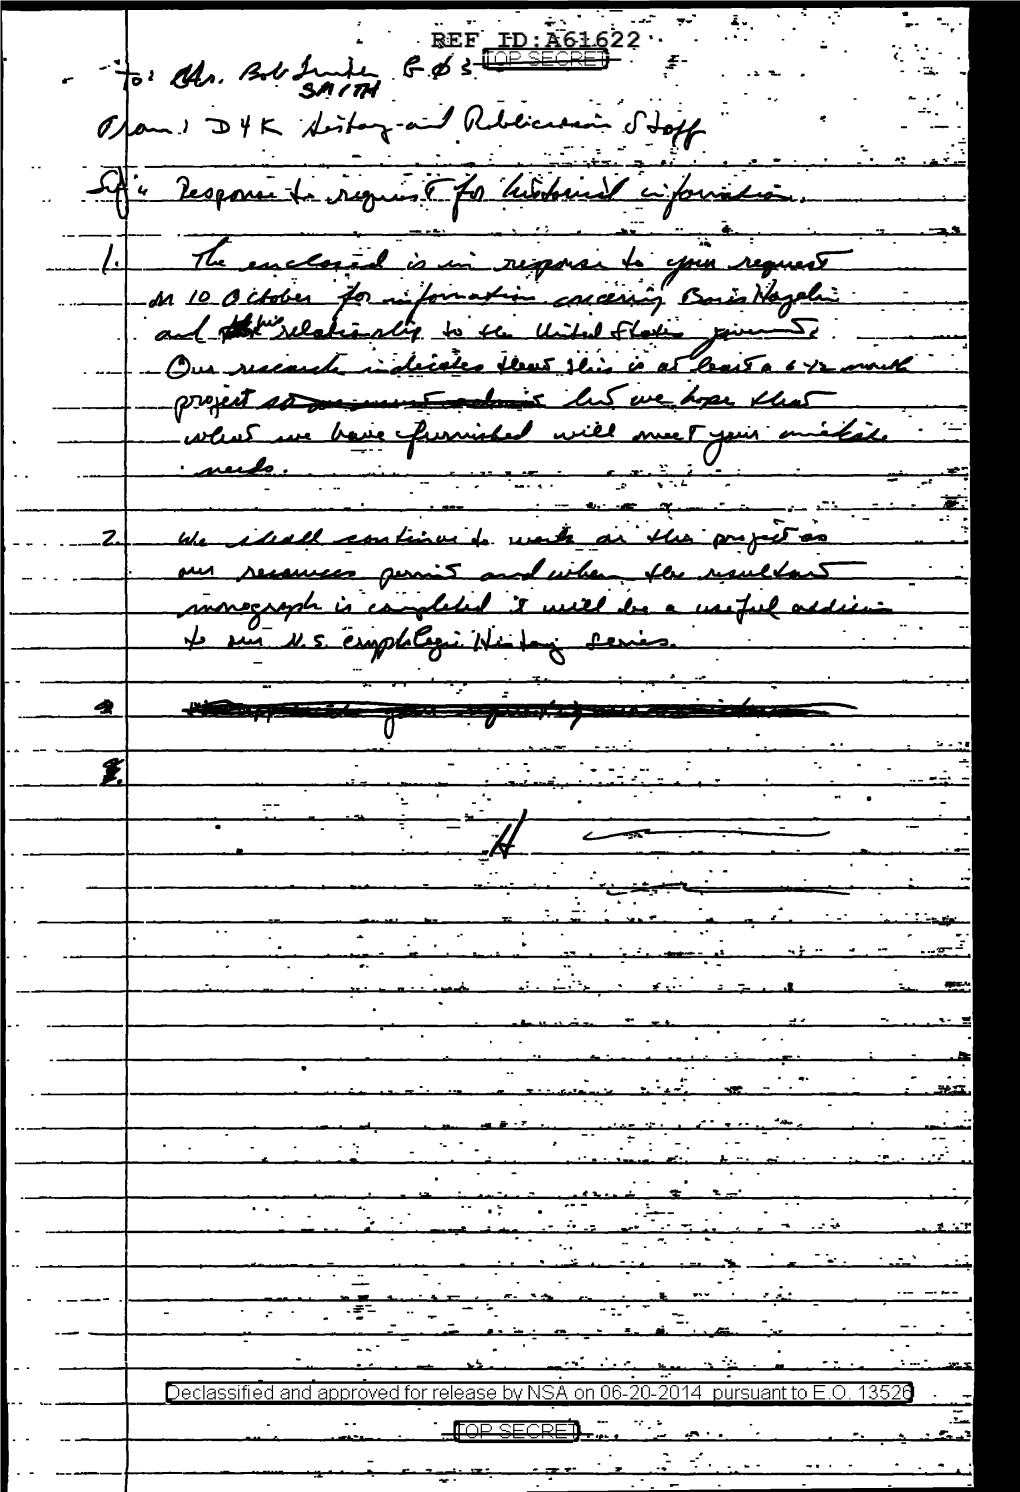 REF ID:A61622
TOP SECRET
To: Mr. Bob G Ø 3
SMITH
From: D4K History and Publications Staff
Subj: Response to request for historical information.
1. The enclosed is in response to your request
on 10 October for information concerning Boris Hagelin
and his relationship to the United States government.
Our research indicates that this is at least a 6 1/2 month
project but we hope that
what we have furnished will meet your immediate
needs.
2. We shall continue to work on this project as
our resources permit and when the resultant
monograph is completed it will be a useful addition
to our U.S. Cryptologic History Series.
H
Declassified and approved for release by NSA on 06-20-2014 pursuant to E.O. 13526
TOP SECRET